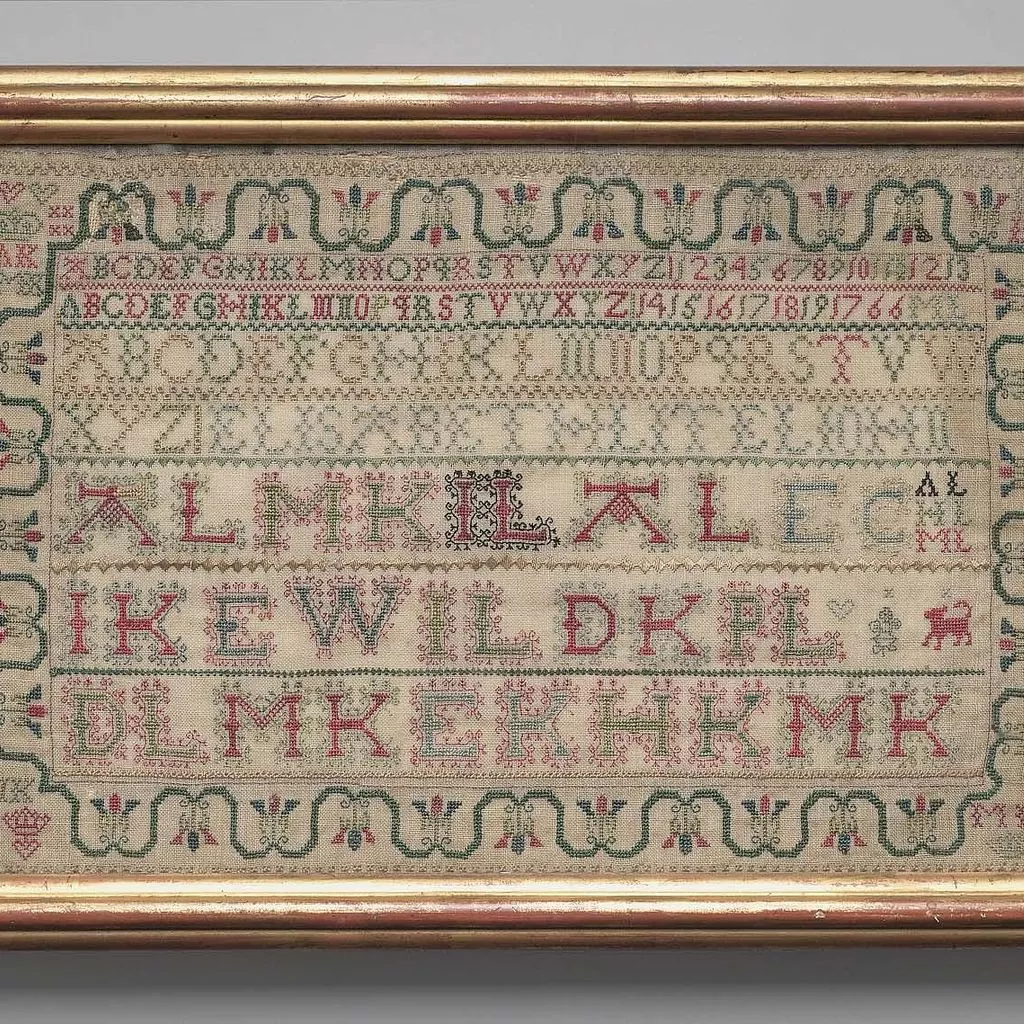 ABCDEFGHIKLMNOPQRSTVWXYZ 1 2 3 4 5 6 7 8 9 10 11 12 13
ABCDEFGHIKLMNOPQRSTVWXYZ 14 15 16 17 18 19 1766 ML
ABCDEFGHIKLMNOPQRSTV
XYZ ELISABET M LITEL
AL MK IL AL EC AL
ML
IK EW IL DK PL
DL MK EK HK MK